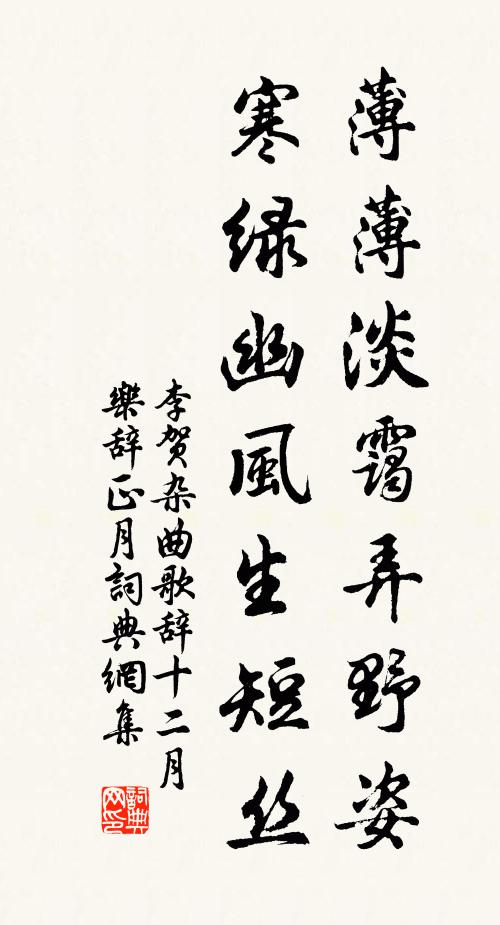 薄薄淡靄弄野姿
寒绿幽風生短丝
李贺杂曲歌辞十二月
樂辞正月詞典網集
詞典网印